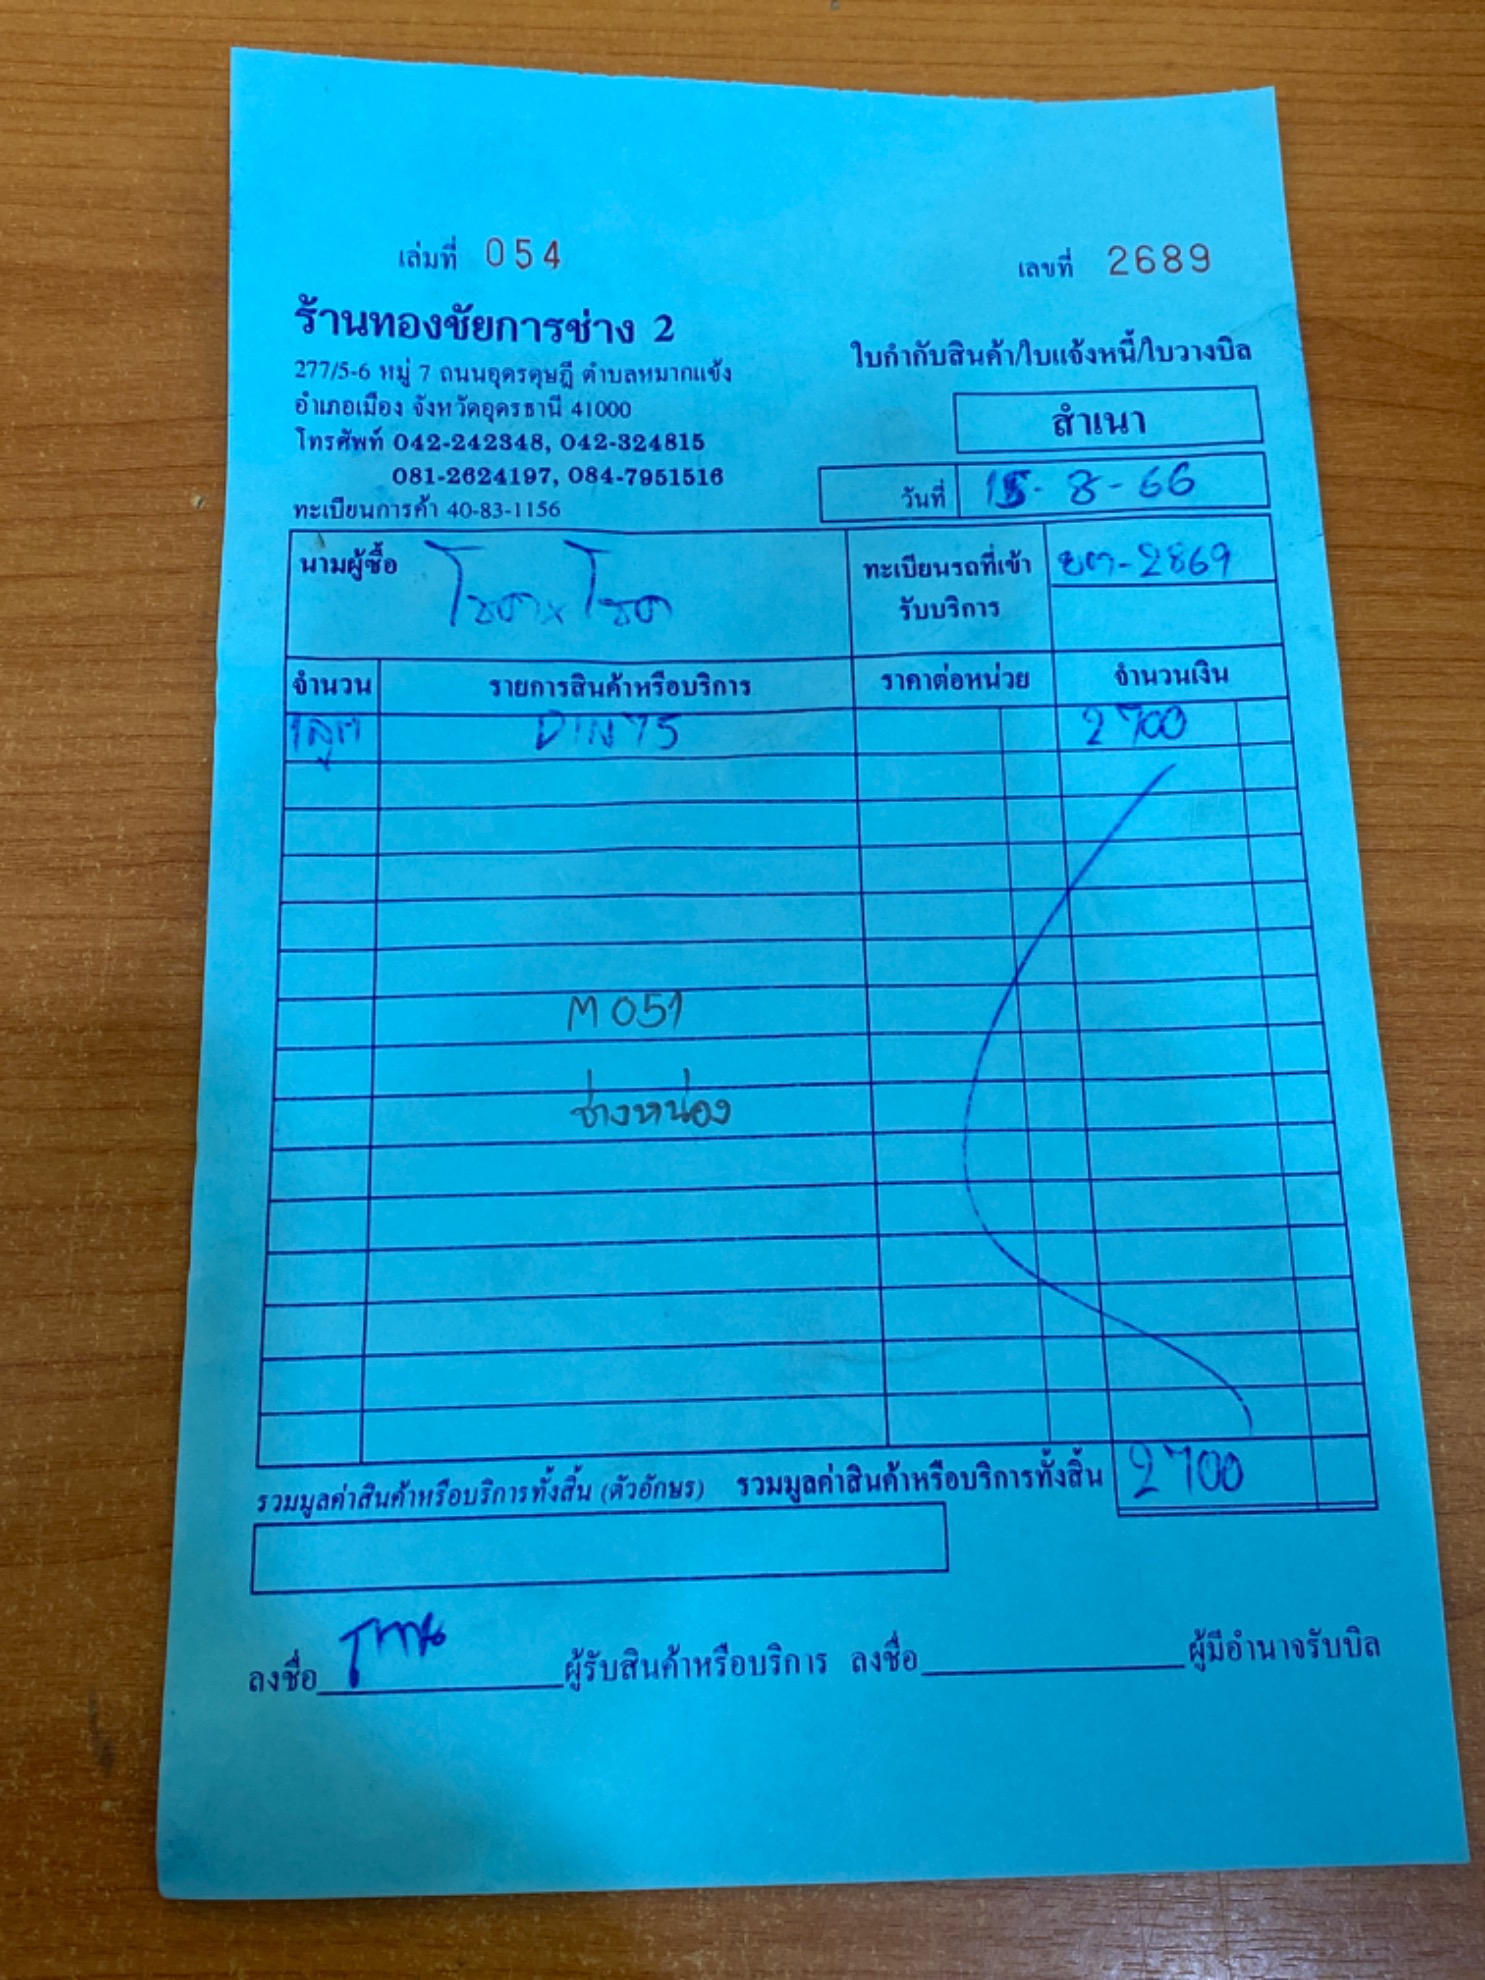 เล่มที่ 054
เลขที่ 2689
ร้านทองชัยการช่าง 2
277/5-6 หมู่ 7 ถนนอุดรดุษฎี ตำบลหมากแข้ง
อำเภอเมือง จังหวัดอุดรธานี 41000
โทรศัพท์ 042-242348, 042-324815
081-2624197, 084-7951516
ทะเบียนการค้า 40-83-1156
ใบกำกับสินค้า/ใบแจ้งหนี้/ใบวางบิล
สำเนา
วันที่ 15-8-66
นามผู้ซื้อ โชค x โชค
ทะเบียนรถที่เข้า
รับบริการ
-2869
จำนวน รายการสินค้าหรือบริการ ราคาต่อหน่วย จำนวนเงิน
1ลูก DIN75 2700
M051
ช่างหน่อง
รวมมูลค่าสินค้าหรือบริการทั้งสิ้น (ตัวอักษร) รวมมูลค่าสินค้าหรือบริการทั้งสิ้น 2700
ลงชื่อ ผู้รับสินค้าหรือบริการ ลงชื่อ ผู้มีอำนาจรับบิล